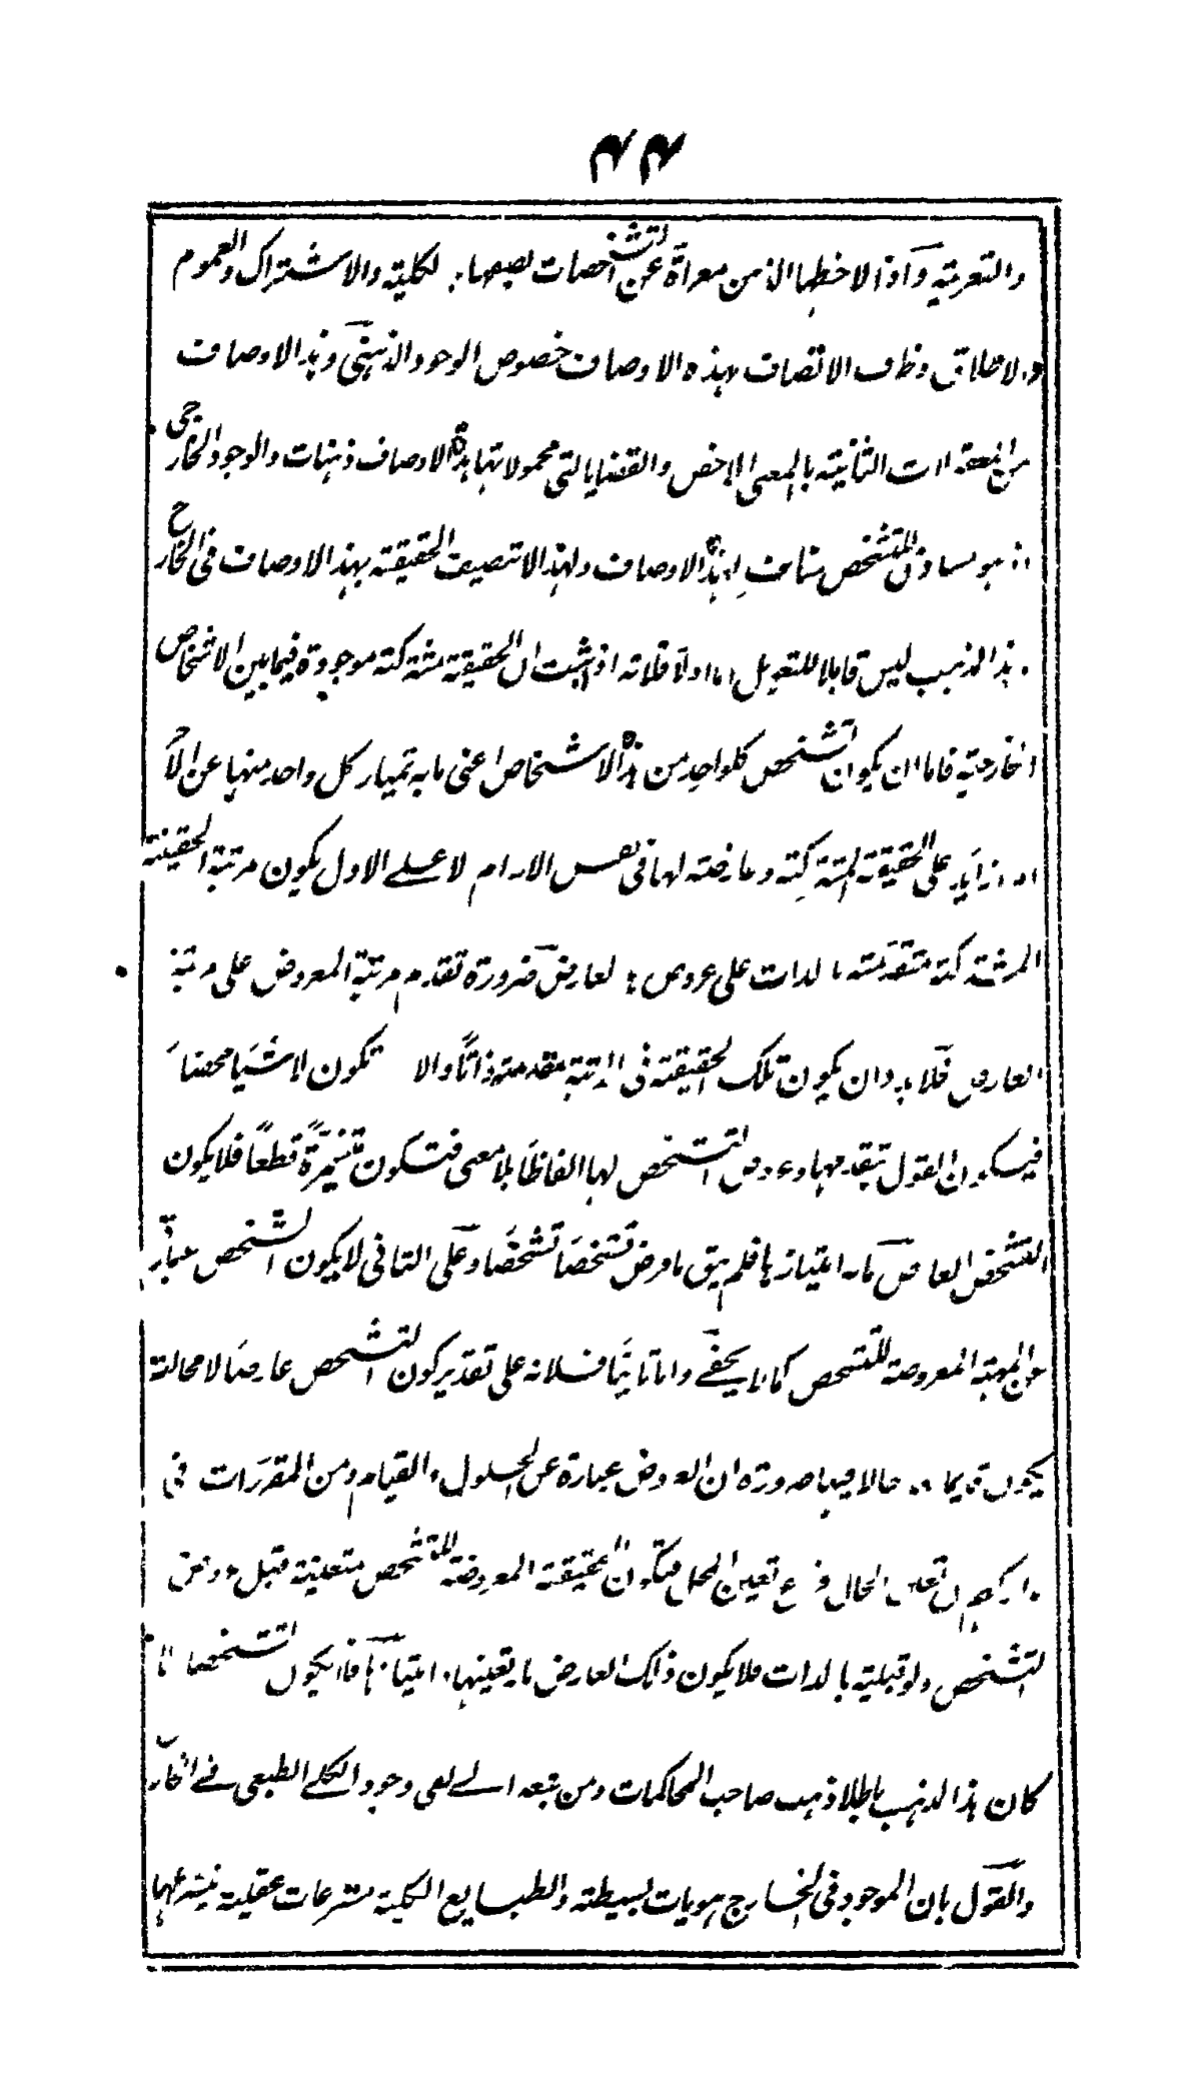 ٤٤
والتعرية واذا لاحظها الذهن معراة عن التشخصات يصفها بالكلية والاشتراك والعموم
والاطلاق وظرف الاتصاف بهذه الاوصاف خصوص الوجود الذهني وهذه الاوصاف
من المعقولات الثانية بالمعنى الاخص والقضايا التي محمولاتها هذه الاوصاف ذهنيات والوجود الخارجي
هو مساوق التشخص مناف لهذه الاوصاف ولهذا لا تتصف الحقيقة بهذه الاوصاف في الخارج
هذا المذهب ليس قابلا للتعويل اما اولا فلانه اذا ثبت ان الحقيقة مشتركة موجودة فيما بين الاشخاص
الخارجية فاما ان يكون تشخص كلواحد من هذه الاشخاص اعني ما به تمياز كل واحد منها عن الآخر
زايد على الحقيقة المشتركة وعارضة لها في نفس الامر ام لا على الاول يكون مرتبة الحقيقة
المشتركة متقدمة بالذات على عروض العارض ضرورة تقدم مرتبة المعروض على مرتبة
العارض فلا بد وان يكون تلك الحقيقة في المرتبة متقدمة ذاتا والا تكون لاشيا محضا
فيكون القول بتقدمها وعروض التشخص لها الفاظا بلا معنى فتكون متميزة قطعا فلا يكون
التشخص العارض ما به امتيازها فلم يبق ما فرض تشخصا تشخصا وعلى الثاني لا يكون التشخص عبارة
عن المهية المعروضة للتشخص كما لا يخفى واما ثانيا فلانه على تقدير كون التشخص عارضا لا محالة
يكون قايما حالا فيها ضرورة ان العروض عبارة عن الحلول والقيام ومن المقررات في
تعين الحال فرع تعين المحل فتكون الحقيقة المعروضة للتشخص متعينة قبل عروض
التشخص ولو قبلية بالذات فلا يكون ذلك العارض ما به تعينها وامتيازها فلا يكون تشخصا
كان هذا المذهب باطلا ذهب صاحب المحاكمات ومن تبعه الى نفي وجود الكلي الطبعي في الخارج
والقول بان الموجود في الخارج هويات بسيطة والطبايع الكلية منتزعات عقلية ينتزعها